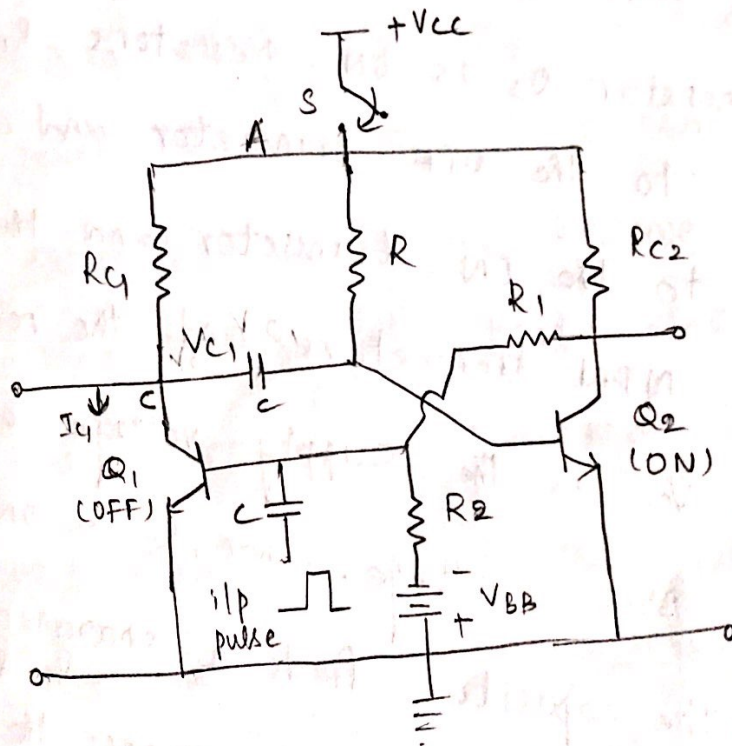 +Vcc
S
A
RC1
R
RC2
R1
VC1
C
C
IC1
Q1
(OFF)
Q2
(ON)
C
R2
i/p
pulse
-
VBB
+